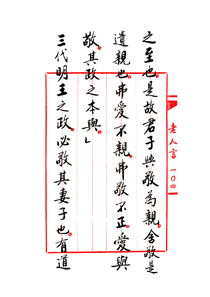 之至也是故君子興敬為親舍敬是
遺親也弗愛不親弗敬不正愛與
敬其政之本與」
三代明王之政必敬其妻子也有道
老人言 一〇四